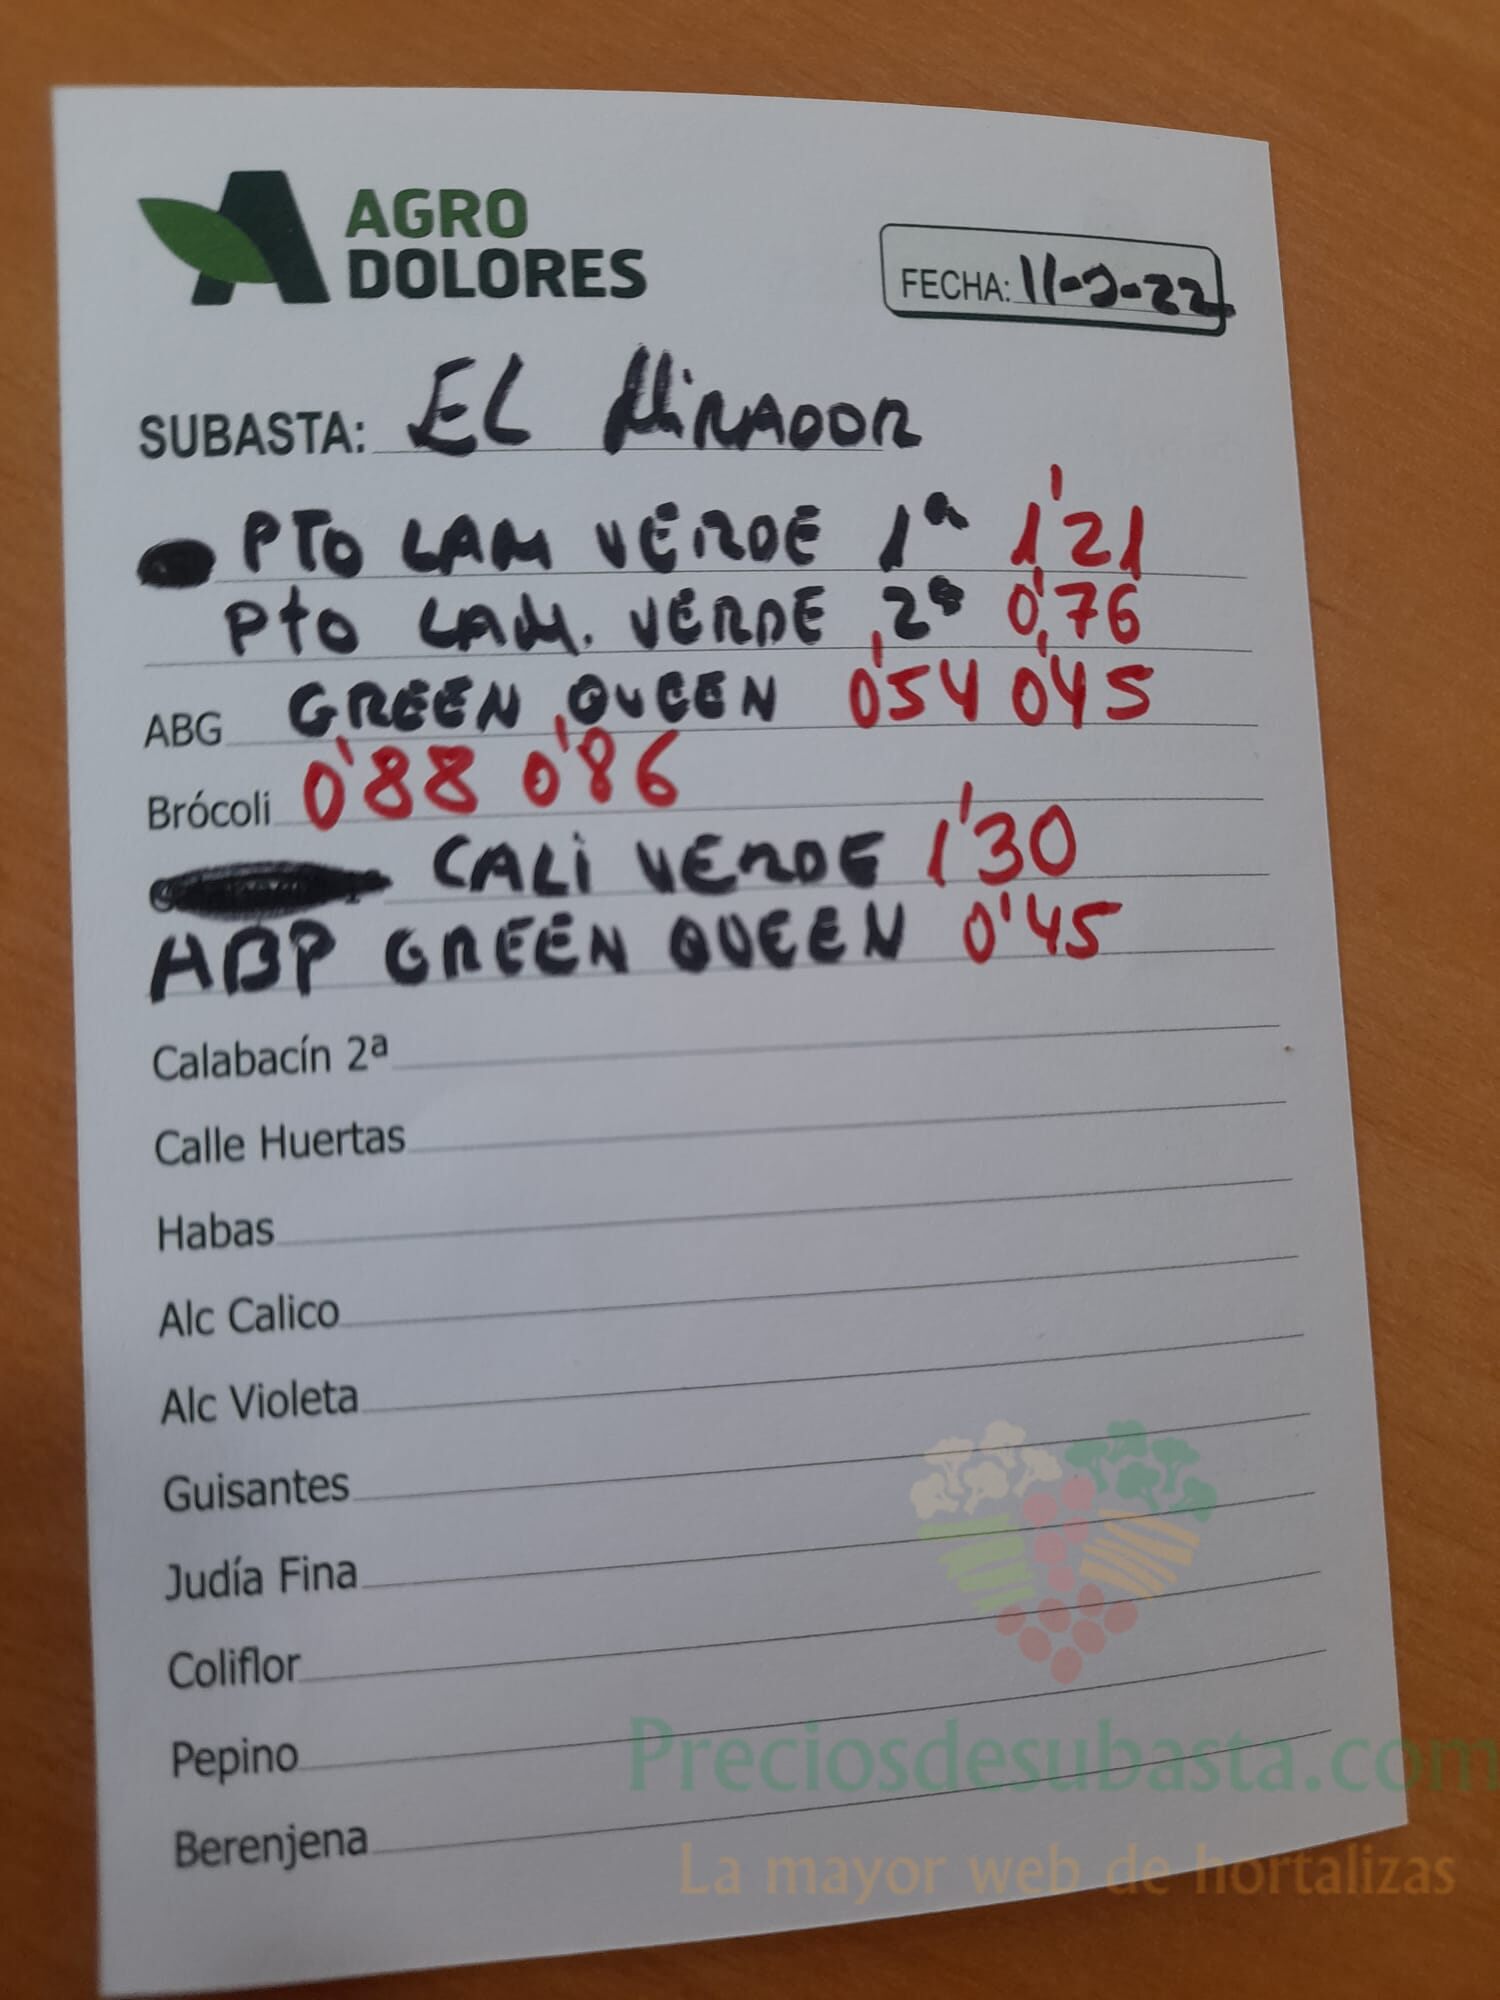 AGRO
DOLORES
FECHA: 11-2-22
SUBASTA: EL MIRADOR
PTO LAM VERDE 1ª 1'21
Pto LAM. VERDE 2ª 0'76
ABG GREEN QUEEN 0'54 0'45
Brócoli 0'88 0'86
CALi VERDE 1'30
ABP GREEN QUEEN 0'45
Calabacín 2ª
Calle Huertas
Habas
Alc Calico
Alc Violeta
Guisantes
Judía Fina
Coliflor
Pepino
Berenjena
Preciosdesubasta.com
La mayor web de hortalizas